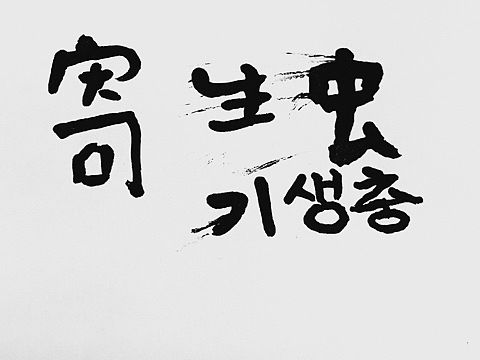 寄生虫
기생충